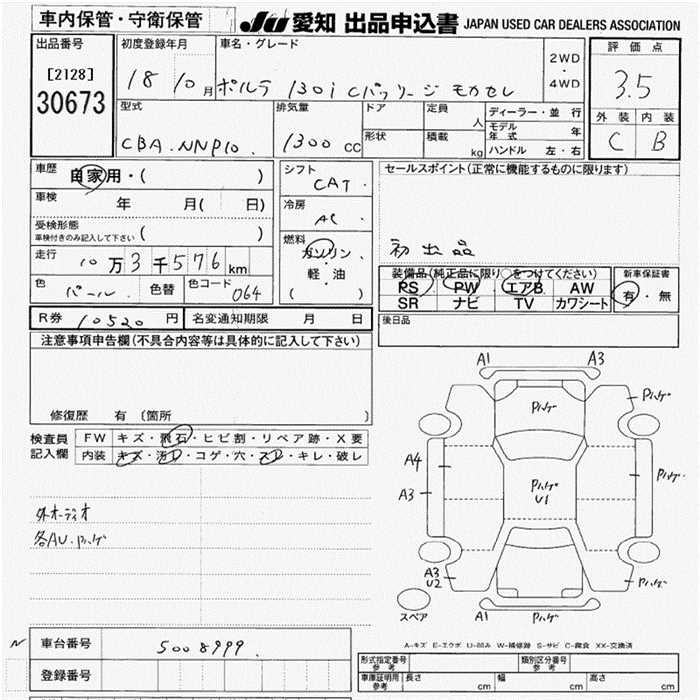 車内保管・守衛保管 JU 愛知 出品申込書 JAPAN USED CAR DEALERS ASSOCIATION
出品番号 初度登録年月 車名・グレード 評価点
[2128] 18 10月 ポルテ 130i Cパッケージ モカセレ 2WD・4WD 3.5
30673 型式 排気量 ドア 定員 人 ディーラー・並 行 外装 内装
モデル年式 年
CBA.NNP10. 1300 CC 形状 積載 kg ハンドル 左・右 C B
車歴 自家用・( ) シフト CAT. セールスポイント(正常に機能するものに限ります)
車検 年 月( 日) 冷房 AC
受検形態 車検付きのみ記入して下さい ( ) 燃料 ガソリン・軽・油 ( ) 初出品
走行 10万3千576km 装備品(純正品に限り○をつけてください) 新車保証書
色 パール. 色替 色コード 064 PS PW エアB AW 有・無
SR ナビ TV カワシート
R券 10520 円 名変通知期限 月 日 後日品
注意事項申告欄(不具合内容等は具体的に記入して下さい)
修復歴 有 (箇所 )
A1 A3
Pハゲ Pハゲ
検査員記入欄 FW キズ・飛石・ヒビ割・リペア跡・X要
内装 キズ・汚レ・コゲ・穴・スレ・キレ・破レ
A4 Pハゲ Pハゲ
A3 U1
外オーディオ
各AU.Pハゲ
A3 U2 Pハゲ
スペア A1 Pハゲ
A-キズ E-エクボ U-凹み W-補修跡 S-サビ C-腐食 XX-交換済
車台番号 5008999.
形式指定番号 参考 類別区分番号 参考
登録番号 車庫証明用 参考 長さ cm 幅 cm 高さ cm